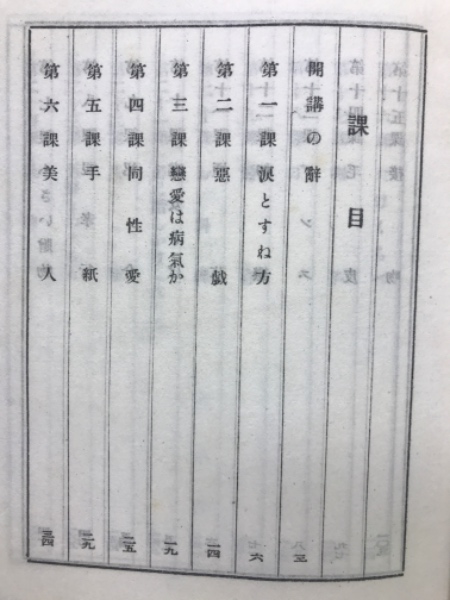 課目
開講の辭 三
第一課 涙とすね方 六
第二課 惡戯 一四
第三課 戀愛は病氣か 一九
第四課 同性愛 二五
第五課 手紙 二九
第六課 美人 三四